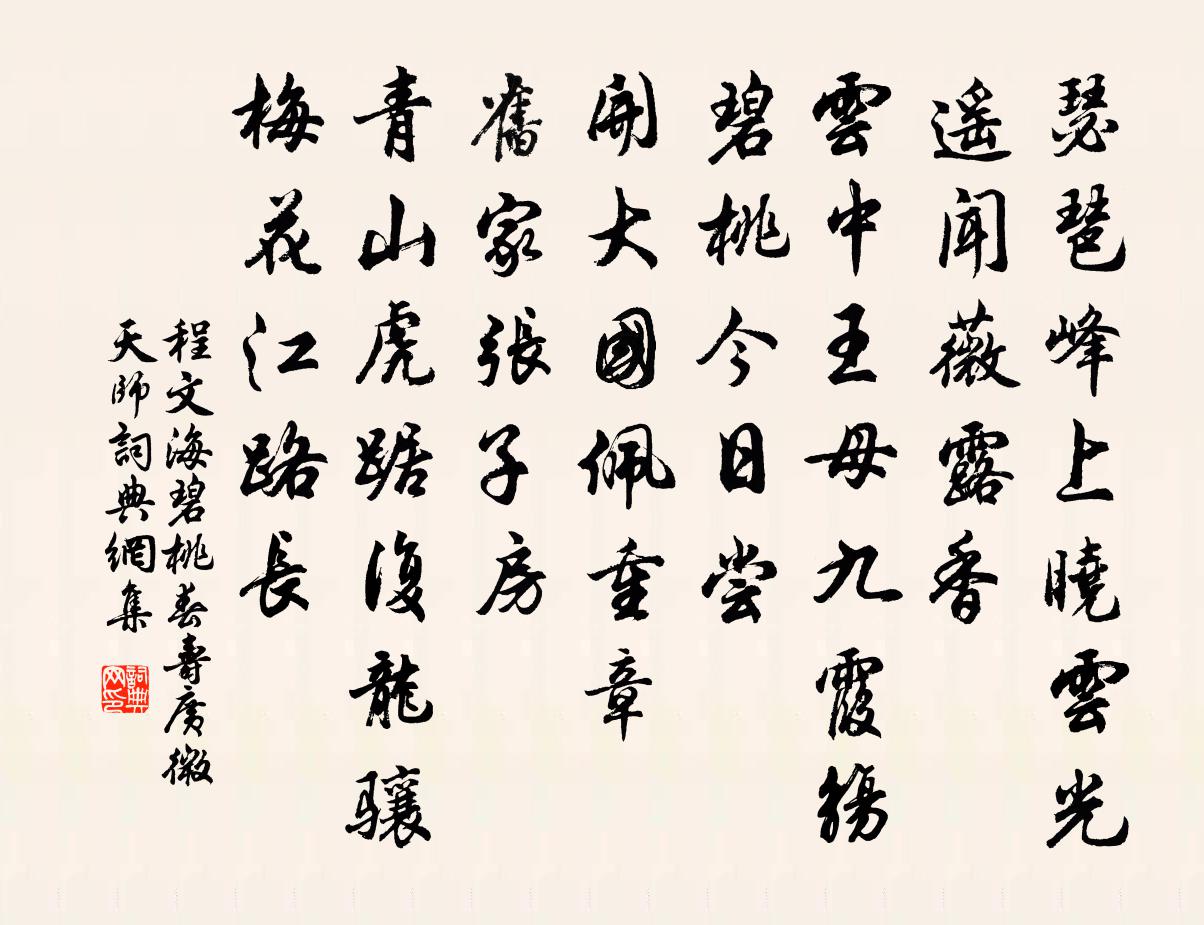 琵琶峰上曉雲光
遥聞薇露香
雲中王母九霞觴
碧桃今日尝
開大國佩重章
舊家張子房
青山虎踞復龍驤
梅花江路長
程文海碧桃春壽廣微
天師詞典網集
詞典網印